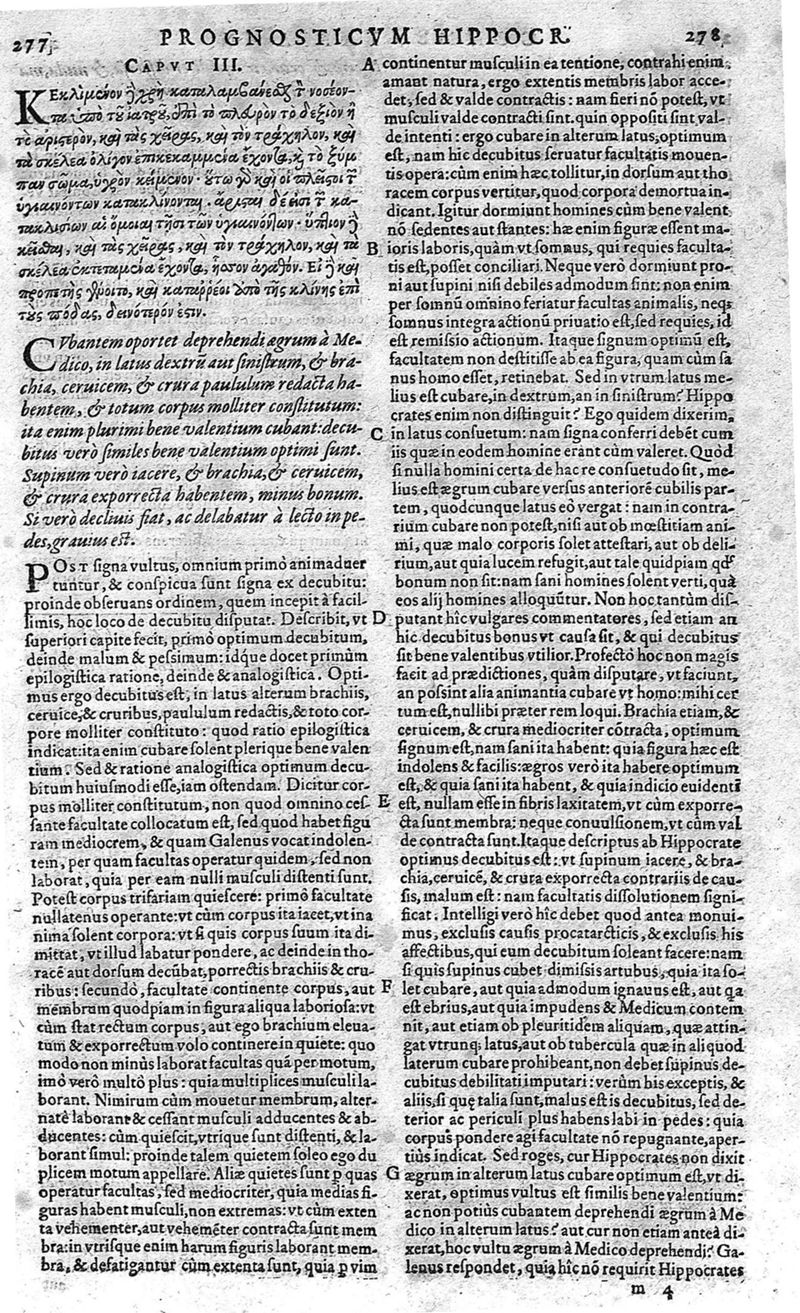 277
PROGNOSTICVM HIPPOCR.
278
CAPVT III.
ΚΕκλιμένον ἢ χρὴ καταλαμβάνεσθαι τ̃ νοσέον-
τα ὑπὸ τοῦ ἰατροῦ, ἐπὶ τὸ πλευρὸν τὸ δεξιὸν ἢ
τὸ ἀριστερὸν, καὶ τὰς χεῖρας, καὶ τὸν τράχηλον, καὶ
τὰ σκέλεα ὀλίγον ἐπικεκαμμένα ἔχοντα, κ̀ τὸ ξύμ
παν σῶμα, ὑγρὸν κείμενον· οὕτω γὰρ καὶ οἱ πλεῖστοι τ̃
ὑγιαινόντων κατακλίνονται. ἄρισται δέ εἰσι τ̃ κα-
τακλισίων αἱ ὅμοιαι τῇσι τῶν ὑγιαινόντων· ὕπτιον ἢ
κεῖσθαι, καὶ τὰς χεῖρας, καὶ τὸν τράχηλον, καὶ τὰ
σκέλεα ἐκτεταμένα ἔχοντα, ἧσσον ἀγαθόν. Εἰ ἢ καὶ
προπετὴς γένοιτο, καὶ καταρρέοι ἀπὸ τῆς κλίνης ἐπὶ
τοὺς πόδας, δεινότερόν ἐστιν.
CVbantem oportet deprehendi ægrum à Me-
dico, in latus dextrũ aut sinistrum, & bra-
chia, ceruicem, & crura paululum redacta ha-
bentem, & totum corpus molliter constitutum:
ita enim plurimi bene valentium cubant: decu-
bitus verò similes bene valentium optimi sunt.
Supinum verò iacere, & brachia, & ceruicem,
& crura exporrecta habentem, minus bonum.
Si verò decliuis fiat, ac delabatur à lecto in pe-
des, grauius est.
POST signa vultus, omnium primò animaduer
tuntur, & conspicua sunt signa ex decubitu:
proinde obseruans ordinem, quem incepit à facil-
limis, hoc loco de decubitu disputat. Describit, vt
superiori capite fecit, primò optimum decubitum,
deinde malum & pessimum: idq́ue docet primùm
epilogistica ratione, deinde & analogistica. Opti-
mus ergo decubitus est, in latus alterum brachiis,
ceruice, & cruribus, paululum redactis, & toto cor-
pore molliter constituto: quod ratio epilogistica
indicat: ita enim cubare solent plerique bene valen
tium. Sed & ratione analogistica optimum decu-
bitum huiusmodi esse, iam ostendam. Dicitur cor-
pus molliter constitutum, non quod omnino ces-
sante facultate collocatum est, sed quod habet figu
ram mediocrem, & quam Galenus vocat indolen-
tem, per quam facultas operatur quidem, sed non
laborat, quia per eam nulli musculi distenti sunt.
Potest corpus trifariam quiescere: primò facultate
nullatenus operante: vt cùm corpus ita iacet, vt ina
nima solent corpora: vt si quis corpus suum ita di-
mittat, vt illud labatur pondere, ac deinde in tho-
racẽ aut dorsum decũbat, porrectis brachiis & cru-
ribus: secundò, facultate continente corpus, aut
membrum quodpiam in figura aliqua laboriosa: vt
cùm stat rectum corpus, aut ego brachium eleua-
tum & exporrectum volo continere in quiete: quo
modo non minùs laborat facultas quã per motum,
imò verò multò plus: quia multiplices musculi la-
borant. Nimirum cùm mouetur membrum, alter-
natè laborant & cessant musculi adducentes & ab-
ducentes: cùm quiescit, vtrique sunt distenti, & la-
borant simul: proinde talem quietem soleo ego du
plicem motum appellare. Aliæ quietes sunt p̱ quas
operatur facultas, sed mediocriter, quia medias fi-
guras habent musculi, non extremas: vt cùm exten
ta vehementer, aut vehemẽter contracta sunt mem
bra: in vtrisque enim harum figuris laborant mem-
bra, & defatigantur cùm extenta sunt, quia p̱ vim
A continentur musculi in ea tentione, contrahi enim
amant natura, ergo extentis membris labor acce-
det, sed & valde contractis: nam fieri nõ potest, vt
musculi valde contracti sint, quin oppositi sint val-
de intenti: ergo cubare in alterum latus, optimum
est, nam hic decubitus seruatur facultatis mouen-
tis opera: cùm enim hæc tollitur, in dorsum aut tho
racem corpus vertitur, quod corpora demortua in-
dicant. Igitur dormiunt homines cùm bene valent
nõ sedentes aut stantes: hæ enim figuræ essent ma-
B ioris laboris, quàm vt somnus, qui requies faculta-
tis est, posset conciliari. Neque verò dormiunt pro-
ni aut supini nisi debiles admodum sint: non enim
per somnũ omnino feriatur facultas animalis, neq;
somnus integra actionũ priuatio est, sed requies, id
est remissio actionum. Itaque signum optimũ est,
facultatem non destitisse ab ea figura, quam cùm sa
nus homo esset, retinebat. Sed in vtrum latus me-
lius est cubare, in dextrum, an in sinistrum? Hippo
crates enim non distinguit? Ego quidem dixerim,
C in latus consuetum: nam signa conferri debẽt cum
iis quæ in eodem homine erant cùm valeret. Quòd
si nulla homini certa de hac re consuetudo sit, me-
lius est ægrum cubare versus anteriorẽ cubilis par-
tem, quodcunque latus eò vergat: nam in contra-
rium cubare non potest, nisi aut ob mœstitiam ani-
mi, quæ malo corporis solet attestari, aut ob deli-
rium, aut quia lucem refugit, aut tale quidpiam qđ
bonum non sit: nam sani homines solent verti, quà
eos alij homines alloquũtur. Non hoc tantùm dis-
D putant hîc vulgares commentatores, sed etiam an
hic decubitus bonus vt causa sit, & qui decubitus
sit bene valentibus vtilior. Profectò hoc non magis
facit ad prædictiones, quàm disputare, vt faciunt,
an possint alia animantia cubare vt homo: mihi cer
tum est, nullibi præter rem loqui. Brachia etiam, &
ceruicem, & crura mediocriter cõtracta, optimum
signum est, nam sani ita habent: quia figura hæc est
indolens & facilis: ægros verò ita habere optimum
est, & quia sani ita habent, & quia indicio euidenti
E est, nullam esse in fibris laxitatem, vt cùm exporre-
cta sunt membra: neque conuulsionem, vt cùm val
de contracta sunt. Itaque descriptus ab Hippocrate
optimus decubitus est: vt supinum iacere, & bra-
chia, ceruicẽ, & crura exporrecta contrariis de cau-
sis, malum est: nam facultatis dissolutionem signi-
ficat. Intelligi verò hîc debet quod antea monui-
mus, exclusis causis procatarcticis, & exclusis his
affectibus, qui eum decubitum soleant facere: nam
si quis supinus cubet dimissis artubus, quia ita so-
F let cubare, aut quia admodum ignauus est, aut qa
est ebrius, aut quia impudens & Medicum contem
nit, aut etiam ob pleuritidem aliquam, quæ attin-
gat vtrunq; latus, aut ob tubercula quæ in aliquod
laterum cubare prohibeant, non debet supinus de-
cubitus debilitati imputari: verùm his exceptis, &
aliis, si quę talia sunt, malus est is decubitus, sed de-
terior ac periculi plus habens labi in pedes: quia
corpus pondere agi facultate nõ repugnante, aper-
tiùs indicat. Sed roges, cur Hippocrates non dixit
G ægrum in alterum latus cubare optimum est, vt di-
xerat, optimus vultus est similis bene valentium:
ac non potiùs cubantem deprehendi ægrum à Me
dico in alterum latus? aut cur non etiam anteà di-
xerat, hoc vultu ægrum à Medico deprehendi? Ga-
lenus respondet, quia hîc nõ requirit Hippocrates
m 4